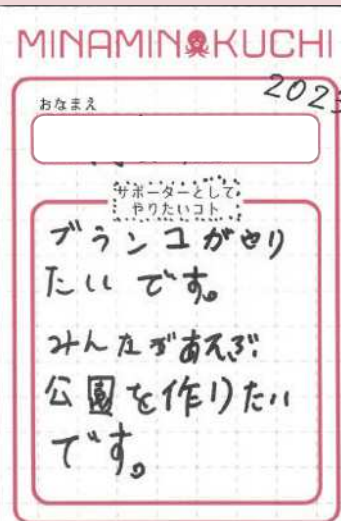 MINAMINOKUCHI
2023
おなまえ
サポーターとして
やりたいコト
ブランコがやり
たいです。
みんながあそぶ
公園を作りたい
です。